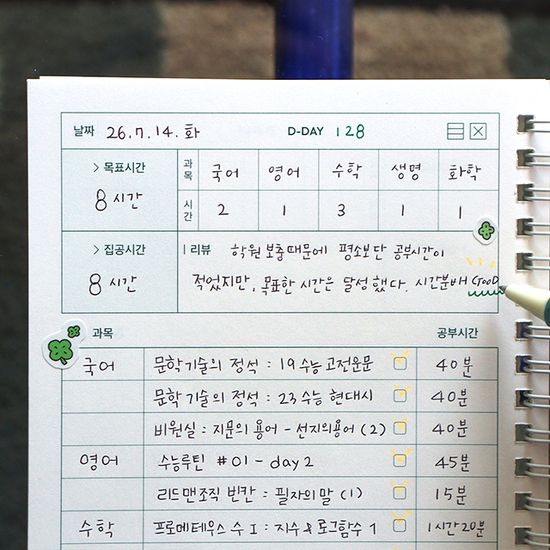 날짜 26.7.14.화 D-DAY 128
> 목표시간 8 시간
과목 국어 영어 수학 생명 화학
시간 2 1 3 1 1
> 집공시간 8 시간
| 리뷰 학원 보충 때문에 평소보단 공부시간이
적었지만, 목표한 시간은 달성했다. 시간분배 GooD
과목 공부시간
국어 문학 기술의 정석 : 19 수능 고전운문 40분
문학 기술의 정석 : 23 수능 현대시 40분
비원실 : 지문의 용어 - 선지의 용어 (2) 40분
영어 수능루틴 #01 - day 2 45분
리드맨조직 빈칸 : 필자의 말 (1) 15분
수학 프로메테우스 수 I : 지수 & 로그함수 1 1시간 20분